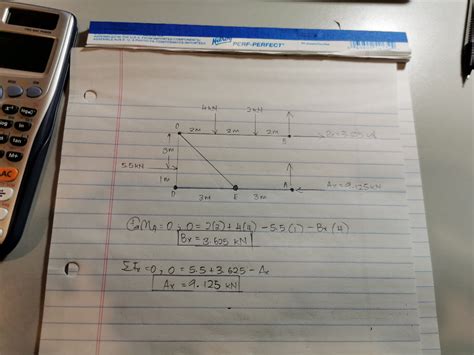 PERF-PERFECT®
4kN 2kN
C 2m 2m 2m B Bx=3.625 kN
3m
5.5kN
1m
D 3m E 3m A Ax=9.125 kN
ΣMA=0; 0=2(2)+4(4)-5.5(1)-Bx(4)
Bx=3.625 kN
ΣFx=0; 0=5.5+3.625-Ax
Ax=9.125 kN